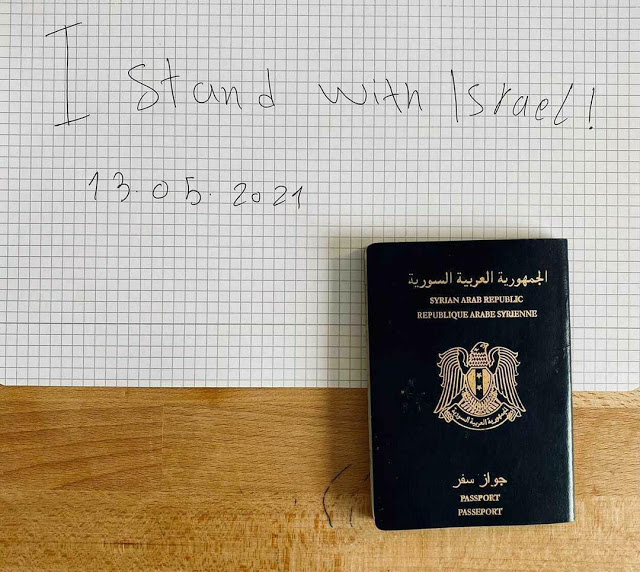 I stand with Israel!
13.05.2021
الجمهورية العربية السورية
SYRIAN ARAB REPUBLIC
REPUBLIQUE ARABE SYRIENNE
الجمهورية العربية السورية
جواز سفر
PASSPORT
PASSEPORT